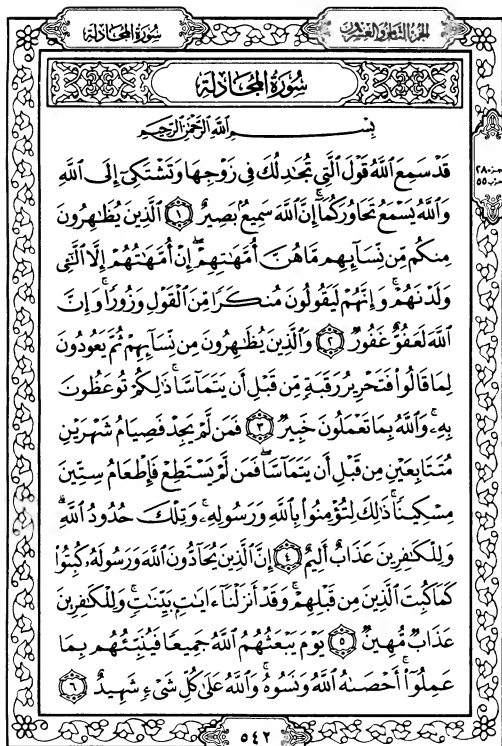 سُورَةُ المُجَادلَة
الجزءُ الثَّامِنُ وَالعِشْرُون
سُورَةُ المُجَادلَة
بِسْمِ ٱللَّهِ ٱلرَّحْمَٰنِ ٱلرَّحِيمِ
جزء ٢٨
حزب ٥٥
قَدْ سَمِعَ ٱللَّهُ قَوْلَ ٱلَّتِى تُجَٰدِلُكَ فِى زَوْجِهَا وَتَشْتَكِىٓ إِلَى ٱللَّهِ
وَٱللَّهُ يَسْمَعُ تَحَاوُرَكُمَآ ۚ إِنَّ ٱللَّهَ سَمِيعٌۢ بَصِيرٌ ١ ٱلَّذِينَ يُظَٰهِرُونَ
مِنكُم مِّن نِّسَآئِهِم مَّا هُنَّ أُمَّهَٰتِهِمْ ۖ إِنْ أُمَّهَٰتُهُمْ إِلَّا ٱلَّٰٓـِٔى
وَلَدْنَهُمْ ۚ وَإِنَّهُمْ لَيَقُولُونَ مُنكَرًا مِّنَ ٱلْقَوْلِ وَزُورًا ۚ وَإِنَّ
ٱللَّهَ لَعَفُوٌّ غَفُورٌ ٢ وَٱلَّذِينَ يُظَٰهِرُونَ مِن نِّسَآئِهِمْ ثُمَّ يَعُودُونَ
لِمَا قَالُوا۟ فَتَحْرِيرُ رَقَبَةٍ مِّن قَبْلِ أَن يَتَمَآسَّا ۚ ذَٰلِكُمْ تُوعَظُونَ
بِهِۦ ۚ وَٱللَّهُ بِمَا تَعْمَلُونَ خَبِيرٌ ٣ فَمَن لَّمْ يَجِدْ فَصِيَامُ شَهْرَيْنِ
مُتَتَابِعَيْنِ مِن قَبْلِ أَن يَتَمَآسَّا ۖ فَمَن لَّمْ يَسْتَطِعْ فَإِطْعَامُ سِتِّينَ
مِسْكِينًا ۚ ذَٰلِكَ لِتُؤْمِنُوا۟ بِٱللَّهِ وَرَسُولِهِۦ ۚ وَتِلْكَ حُدُودُ ٱللَّهِ ۗ
وَلِلْكَٰفِرِينَ عَذَابٌ أَلِيمٌ ٤ إِنَّ ٱلَّذِينَ يُحَآدُّونَ ٱللَّهَ وَرَسُولَهُۥ كُبِتُوا۟
كَمَا كُبِتَ ٱلَّذِينَ مِن قَبْلِهِمْ ۚ وَقَدْ أَنزَلْنَآ ءَايَٰتٍۭ بَيِّنَٰتٍ ۚ وَلِلْكَٰفِرِينَ
عَذَابٌ مُّهِينٌ ٥ يَوْمَ يَبْعَثُهُمُ ٱللَّهُ جَمِيعًا فَيُنَبِّئُهُم بِمَا
عَمِلُوٓا۟ ۚ أَحْصَىٰهُ ٱللَّهُ وَنَسُوهُ ۚ وَٱللَّهُ عَلَىٰ كُلِّ شَىْءٍ شَهِيدٌ ٦
٥٤٢